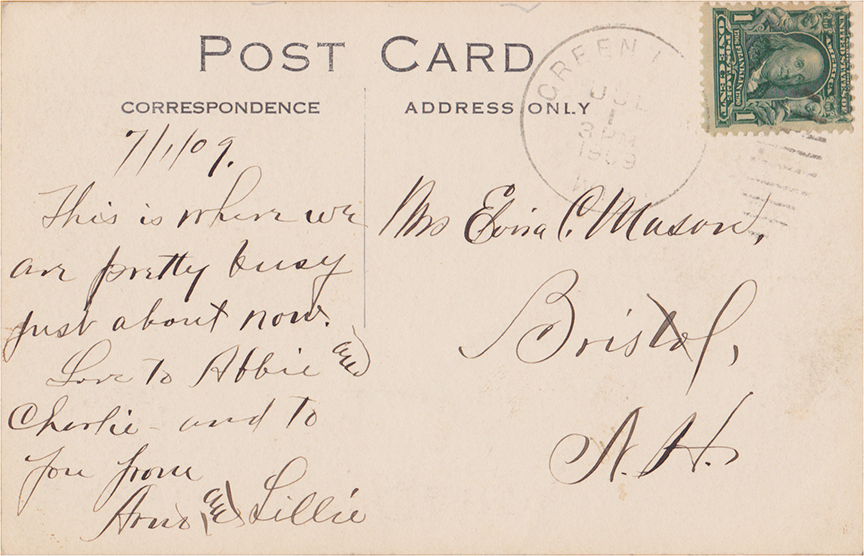 POST CARD
CORRESPONDENCE
ADDRESS ONLY
GREEN
JUL
1
3 PM
1909
1
7/1/09.
This is where we
are pretty busy
just about now.
Love to Abbie and
Charlie - and to
you from
and Lillie
Mrs C. Mason,
Bristol,
N. H.